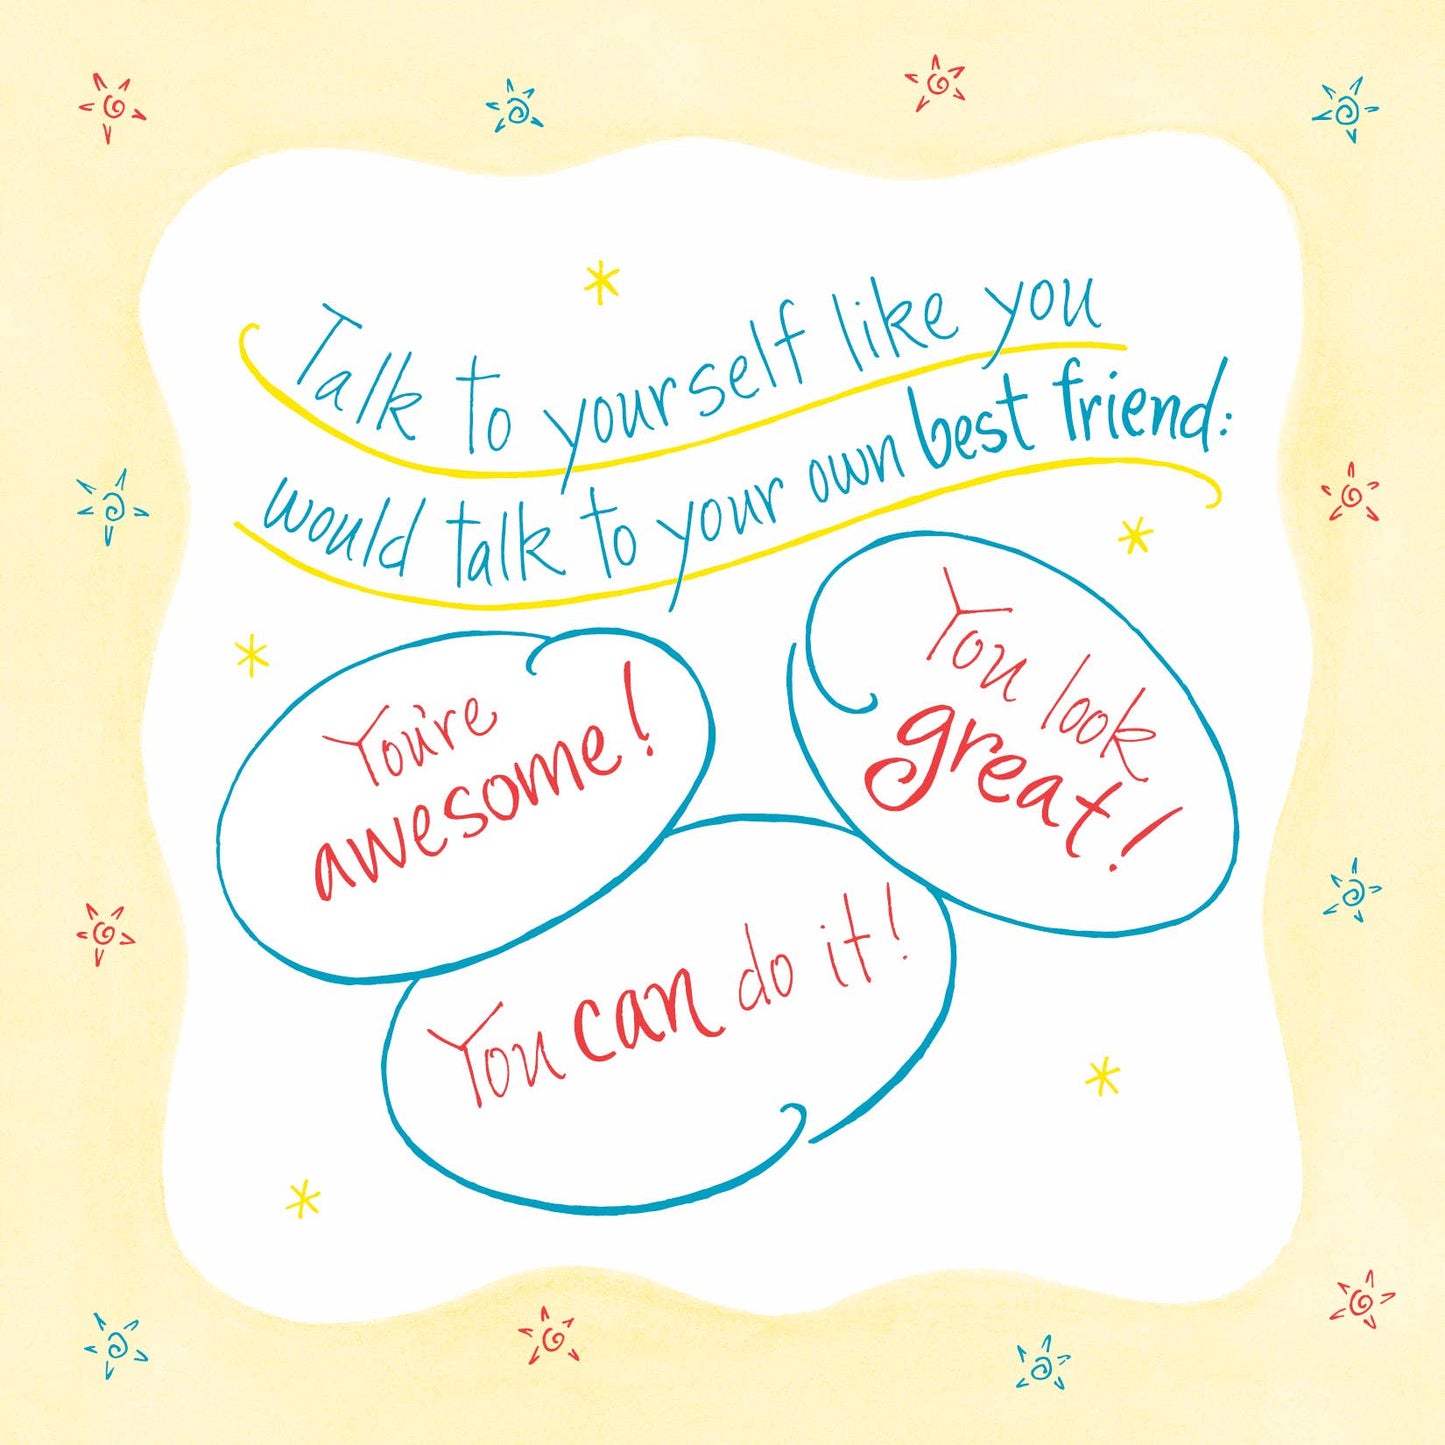 Talk to yourself like you
would talk to your own best friend:
You're
awesome!
You look
great!
You can do it!